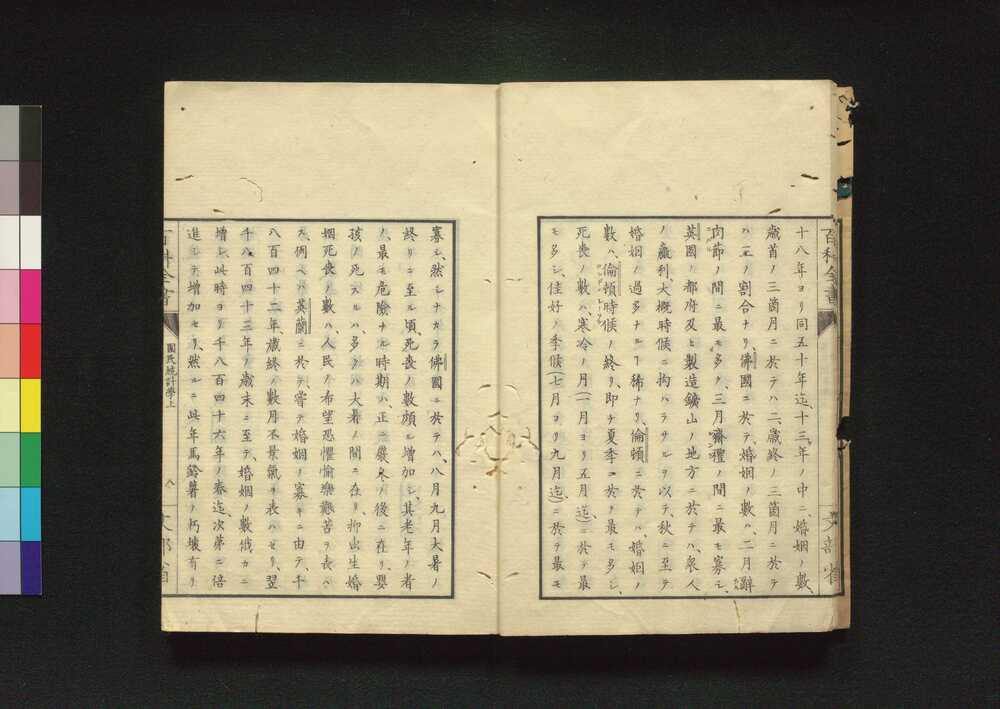 百科全書
十八年ヨリ同五十年迄、十三年ノ中ニ、婚姻ノ數、
歳首ノ三箇月ニ於テハ二、歳終ノ三箇月ニ於テ
ハ三ノ割合ナリ、佛國ニ於テ、婚姻ノ數ハ、二月辭
肉節ノ間ニ最モ多ク、三月齋禮ノ間ニ最モ寡シ、
英國ノ都府及ヒ製造鑛山ノ地方ニ於テハ、衆人
ノ贏利大概時候ニ拘ハラサルヲ以テ、秋ニ至テ
婚姻ノ過多ナルヿ稀ナリ、倫頓ニ於テハ、婚姻ノ
數ハ、倫頓時候ノ終リ、即チ夏季ニ於テ最モ多シ、
死喪ノ數ハ、寒冷ノ月(一月ヨリ五月迄)ニ於テ最
モ多シ、佳好ノ季候(七月ヨリ九月迄)ニ於テ最モ
文部省
寡シ、然シナカラ佛國ニ於テハ、八月九月大暑ノ
終リニ至ル頃、死喪ノ數頗ル增加シ、其老年ノ者
ノ最モ危險ナル時期ハ、正ニ嚴冬ノ後ニ在リ、嬰
孩ノ死スルハ、多クハ大暑ノ間ニ在リ、抑出生婚
姻死喪ノ數ハ、人民ノ希望恐懼愉樂艱苦ヲ表ハ
ス、例ヘハ英蘭ニ於テ、嘗テ婚姻ノ寡キニ由テ、千
八百四十二年、歳終ノ數月不景氣ヲ表ハセリ、翌
千八百四十三年ノ歳末ニ至テ、婚姻ノ數俄カニ
增シ、此時ヨリ千八百四十六年ノ春迄、次第ニ倍
進シテ增加セリ、然ルニ此年馬鈴薯ノ朽壞有リ
百科全書
國民統計學上
八
文部省